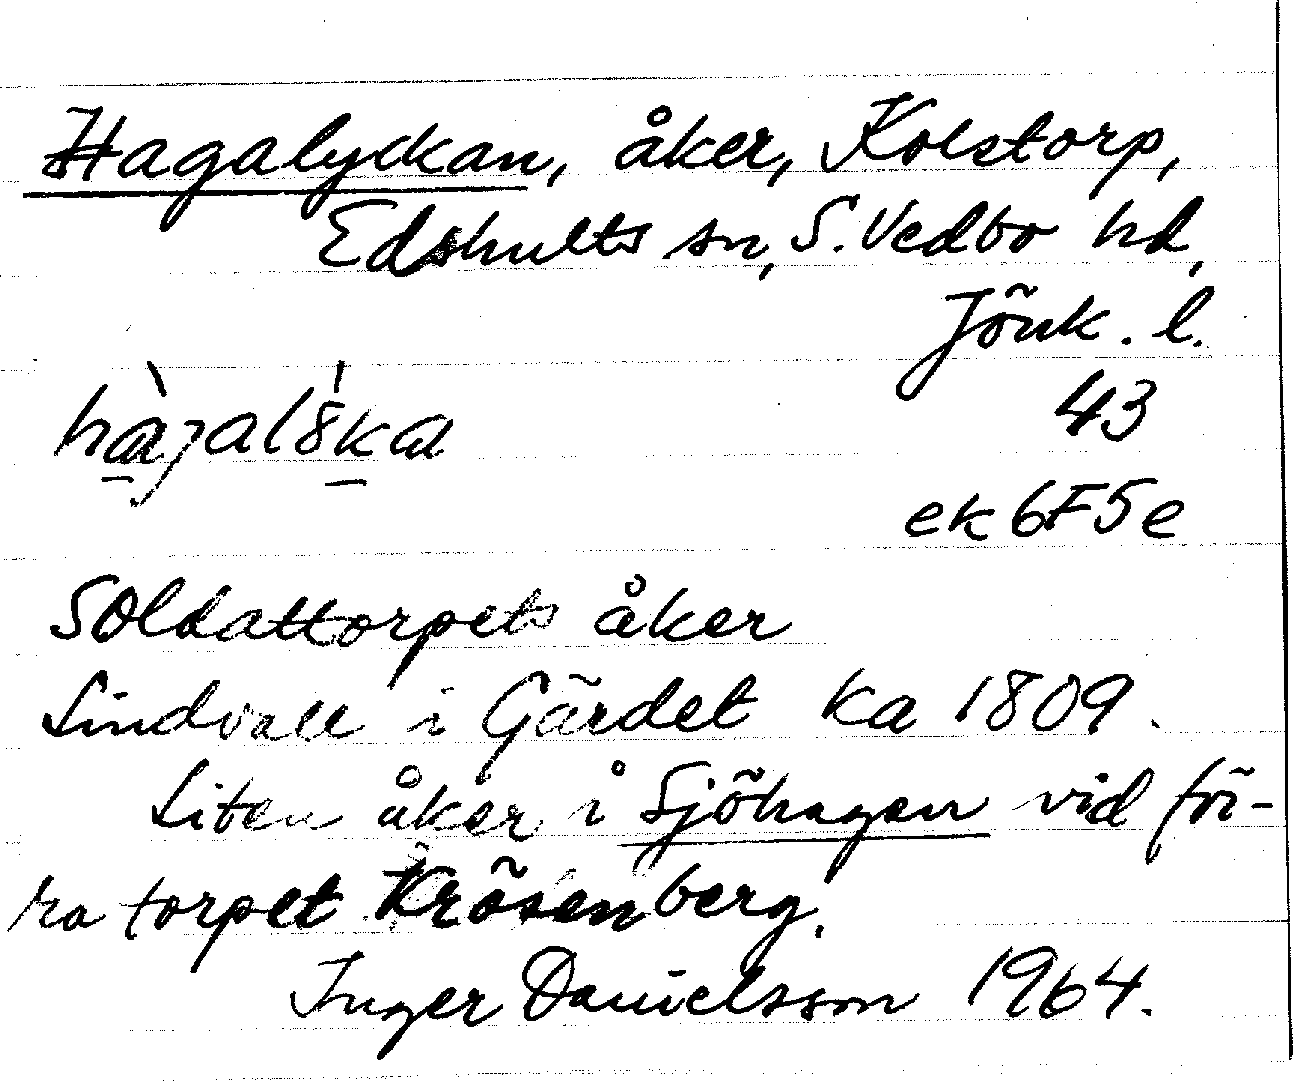 Hagalyckan, åker, Kolstorp,
Edshults sn, S. Vedbo hd,
Jönk. l.
43
ek 6F5e
Soldattorpets åker
Lindvall i Gärdet ka 1809.
Liten åker i Sjöhagen vid fö-
ra torpet Krösenberg.
Inger Danielsson 1964.